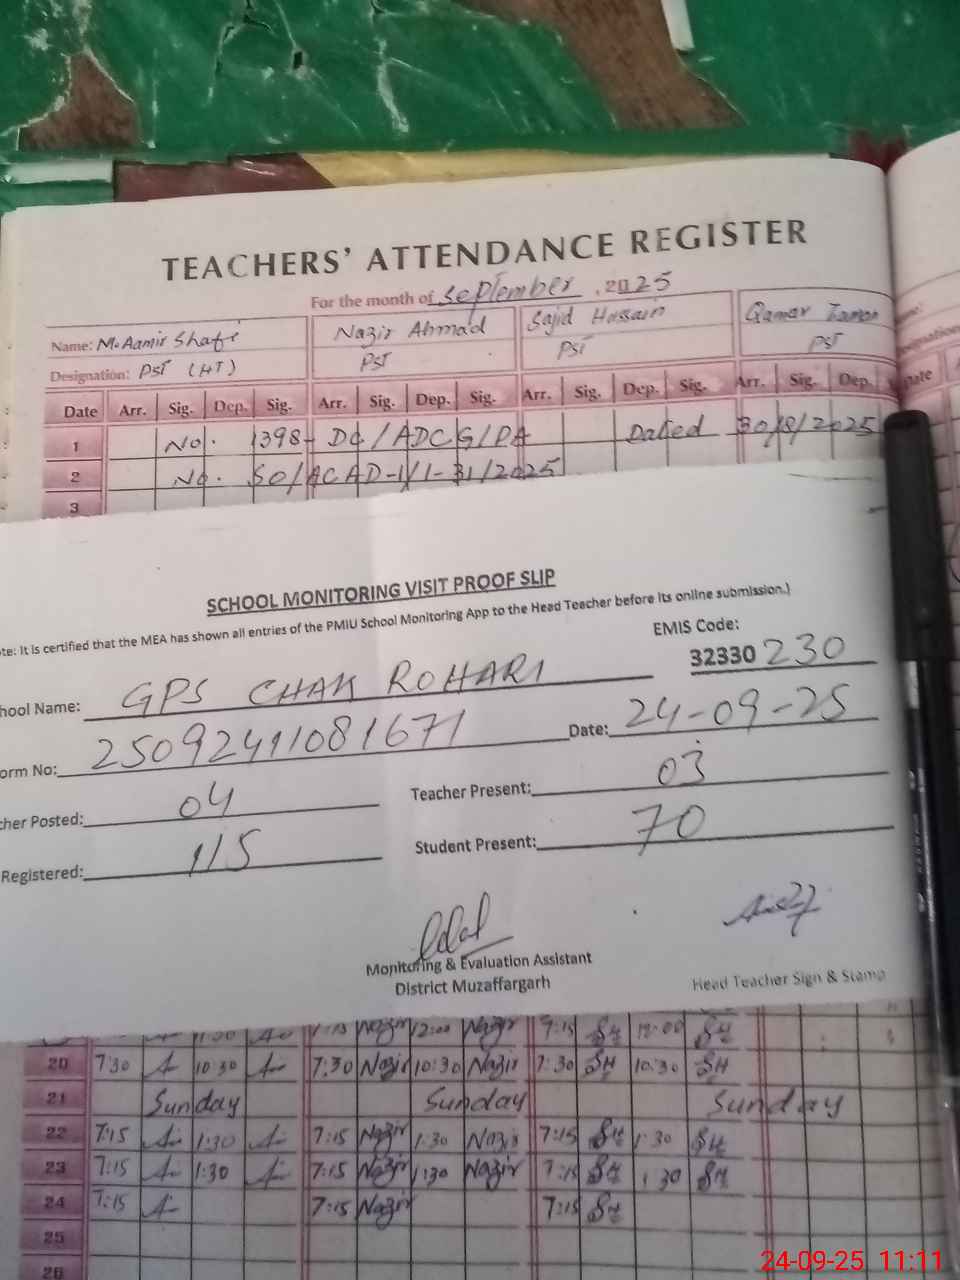 TEACHERS' ATTENDANCE REGISTER
For the month of September, 2025
Name: M. Aamir Shafi Nazir Ahmad Sajid Hussain Qamar Zaman
Designation: PST (HT) PST PST PST
Date Arr. Sig. Dep. Sig. Arr. Sig. Dep. Sig. Arr. Sig. Dep. Sig. Arr. Sig. Dep.
1 No. 1398- DC/ADCG/PA Dated 30/8/2025
2 No. SO/ACAD-1/1-31/2025
3
SCHOOL MONITORING VISIT PROOF SLIP
te: It is certified that the MEA has shown all entries of the PMIU School Monitoring App to the Head Teacher before its online submission.)
EMIS Code:
32330 230
hool Name: GPS CHAK ROHARI
orm No: 25092411081671 Date: 24-09-25
cher Posted: 04 Teacher Present: 03
Registered: 115 Student Present: 70
Monitoring & Evaluation Assistant
District Muzaffargarh
Head Teacher Sign & Stamp
7:15 Nazir 12:00 Nazir 7:15 SH 12:00 SH
20 7:30 A 10:30 A 7:30 Nazir 10:30 Nazir 7:30 SH 10:30 SH
21 Sunday Sunday Sunday
22 7:15 A 1:30 A 7:15 Nazir 1:30 Nazir 7:15 SH 1:30 SH
23 7:15 A 1:30 A 7:15 Nazir 1:30 Nazir 7:15 SH 1:30 SH
24 7:15 A 7:15 Nazir 7:15 SH
25
26
24-09-25 11:11